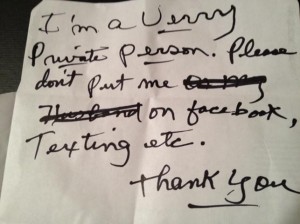 I'm a Verry
Private person. Please
don't put me or my
Husband on facebook,
Texting etc.
Thank You